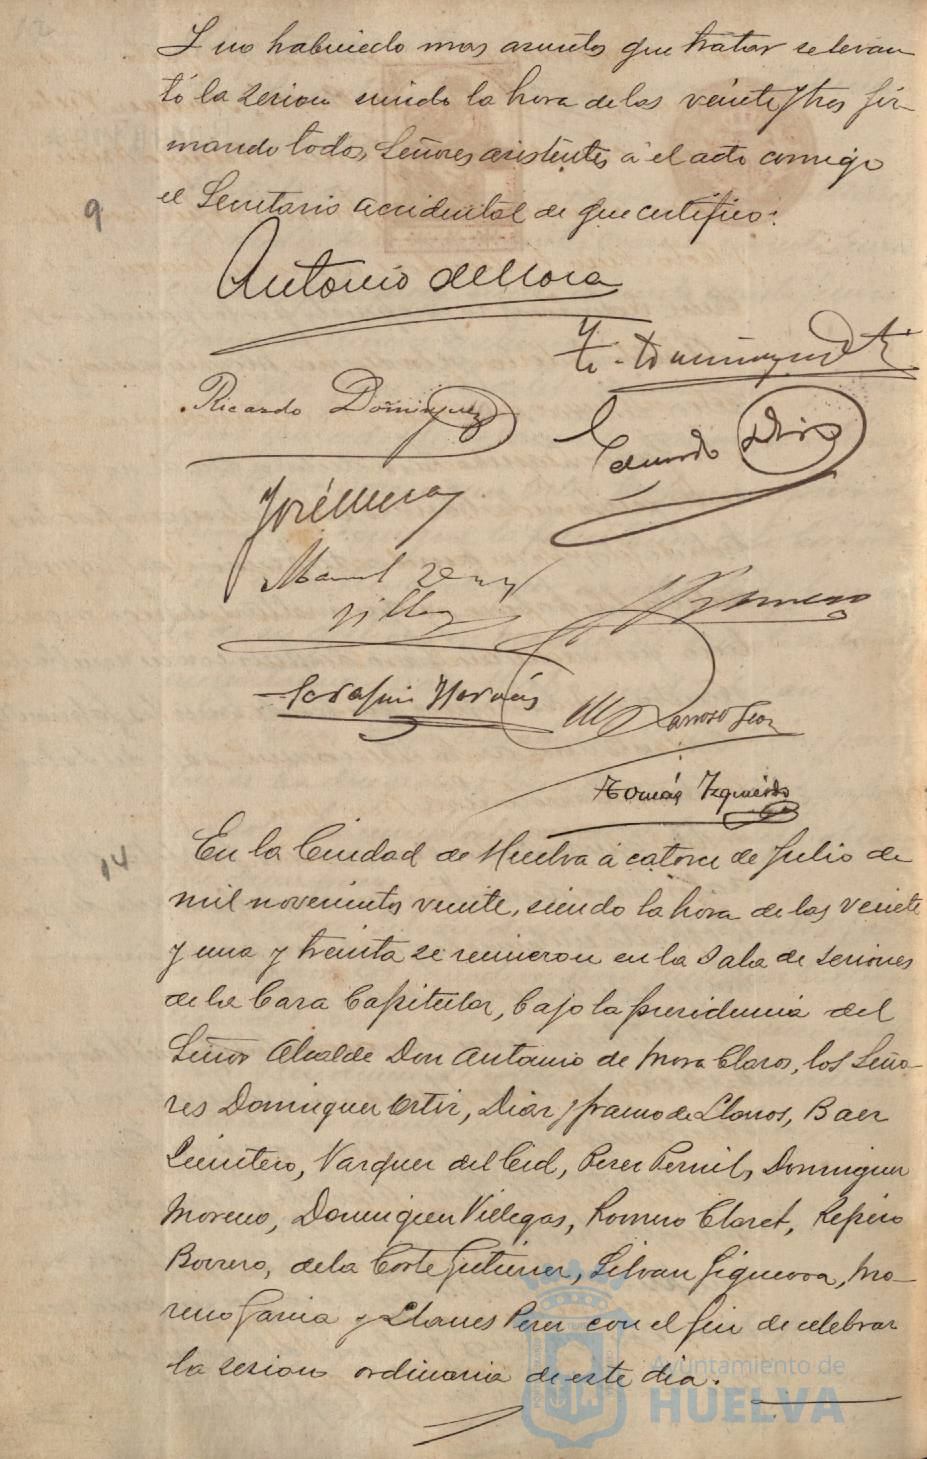 Y no habiendo mas asuntos que tratar se levan
tó la sesion siendo la hora de las veinte y tres fir-
mando todos Señores asistentes a el acto conmigo
el Secretario accidental de que certifico:
9
Antonio de Mora
Ricardo Dominguez
Eduardo Diaz
José
Manuel
Tomás Izquierdo
14
En la Ciudad de Huelva á catorce de Julio de
mil novecientos veinte, siendo la hora de las veinte
y una y treinta se reunieron en la Sala de sesiones
de la Casa Capitular, bajo la presidencia del
Señor Alcalde Don Antonio de Mora Claros, los Seño-
res Dominguez Ortiz, Diaz y franco de Llanos, Baez
Quintero, Vazquez del Cid, Perez Pernil, Dominguez
Moreno, Dominguez Villegas, Romero Claret, Repiso
Borrero, de la Corte Gutierrez, Silvan Figueroa, Mo-
reno Garcia y Llanes Perez con el fin de celebrar
la sesion ordinaria de este dia.
Ayuntamiento de
HUELVA